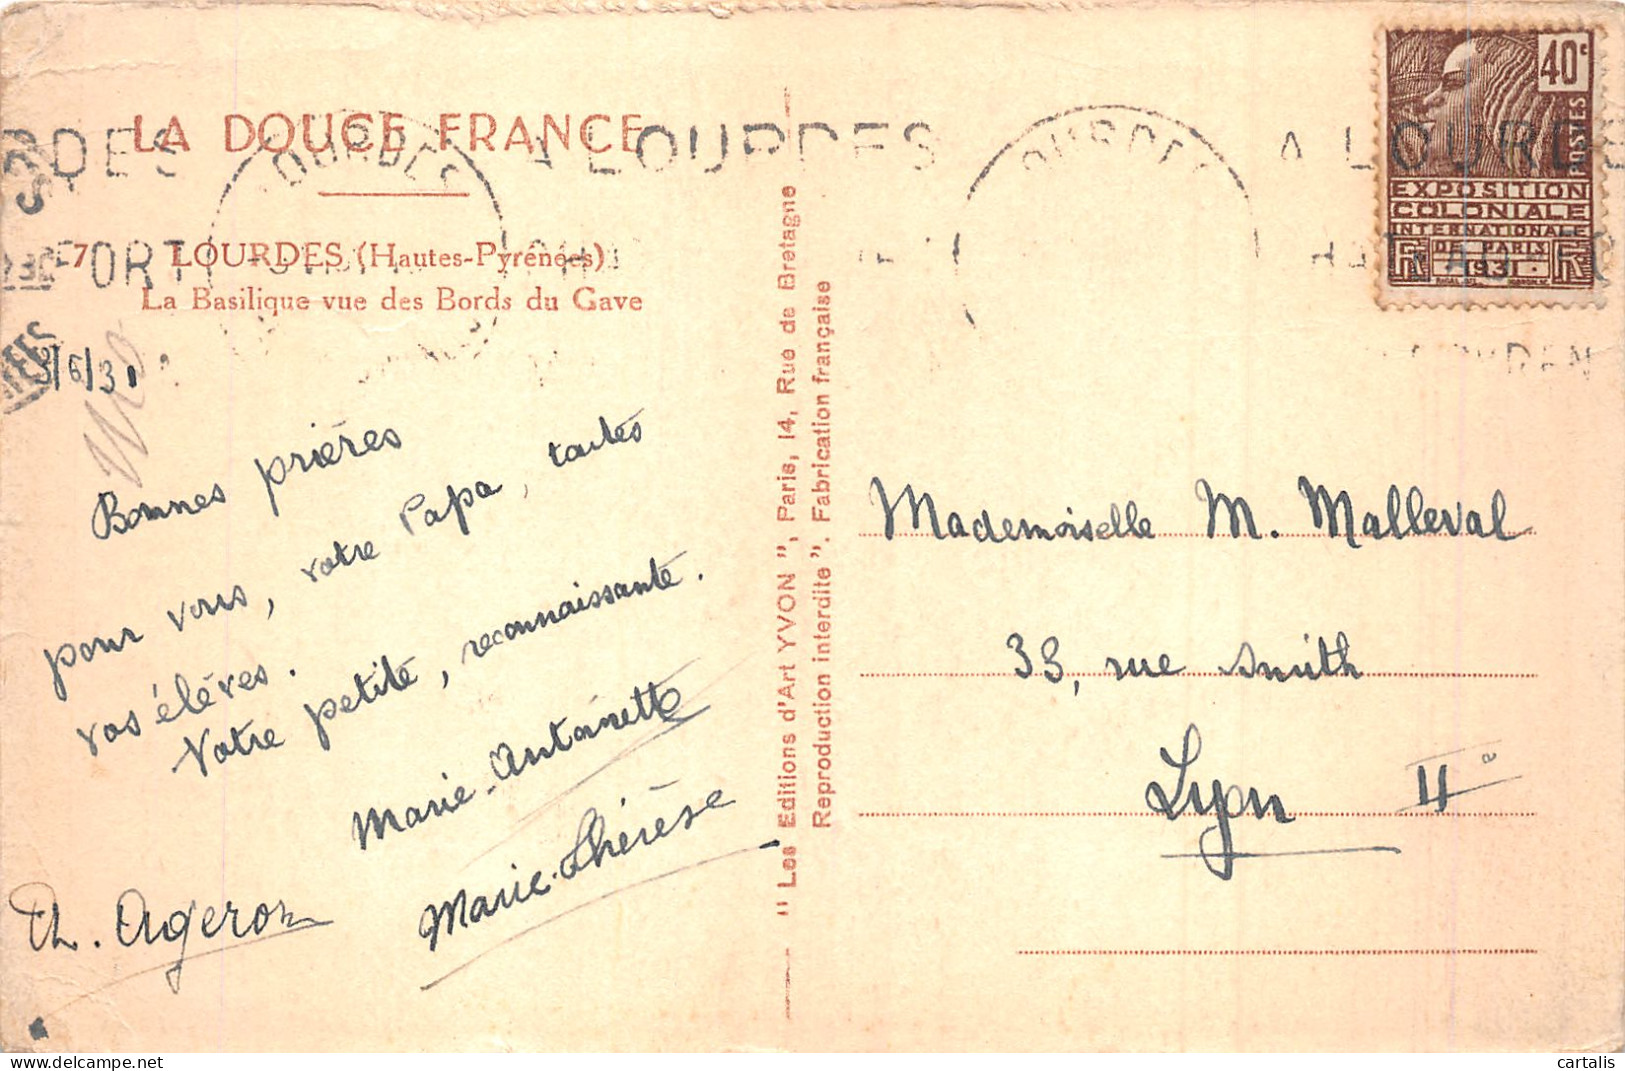 LA DOUCE FRANCE
7 LOURDES (Hautes-Pyrénées)
La Basilique vue des Bords du Gave
8/6/31
Bonnes prières
pour vous, votre Papa, toutes
vos élèves.
Votre petite, reconnaissante.
Marie-Antoinette
Marie-Thérèse
Th. Ageron
" Les Editions d'Art YVON ", Paris, 14, Rue de Bretagne
Reproduction interdite ". Fabrication française
LOURDES
A LOURDES
A LOURDES
40c
POSTES
EXPOSITION
COLONIALE
INTERNATIONALE
DE PARIS
RF 1931 RF
Mademoiselle M. Malleval
33, rue Smith
Lyon II e
cartalis